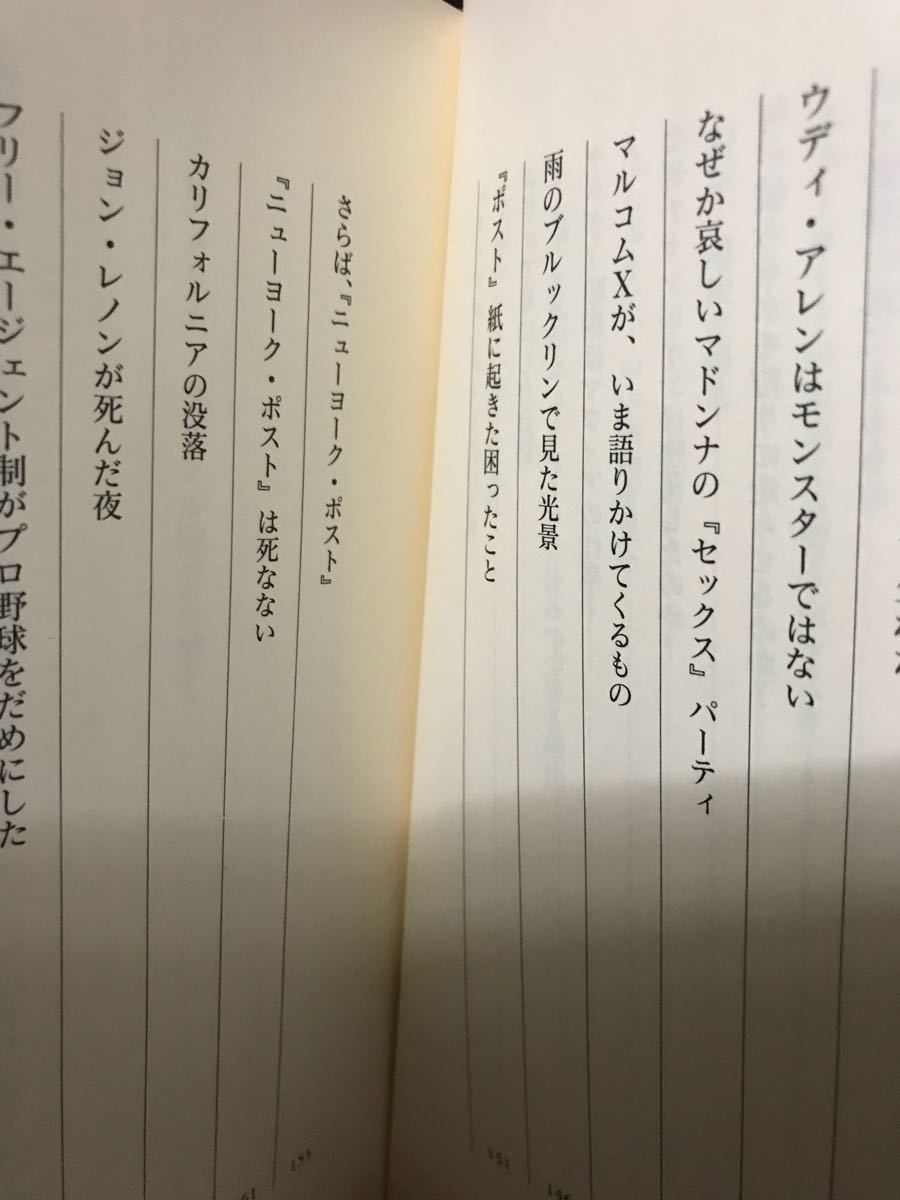 ウディ・アレンはモンスターではない
なぜか哀しいマドンナの『セックス』パーティ
マルコムXが、いま語りかけてくるもの
雨のブルックリンで見た光景
『ポスト』紙に起きた困ったこと
151
さらば、『ニューヨーク・ポスト』
155
『ニューヨーク・ポスト』は死なない
カリフォルニアの没落
ジョン・レノンが死んだ夜
フリー・エージェント制がプロ野球をだめにした